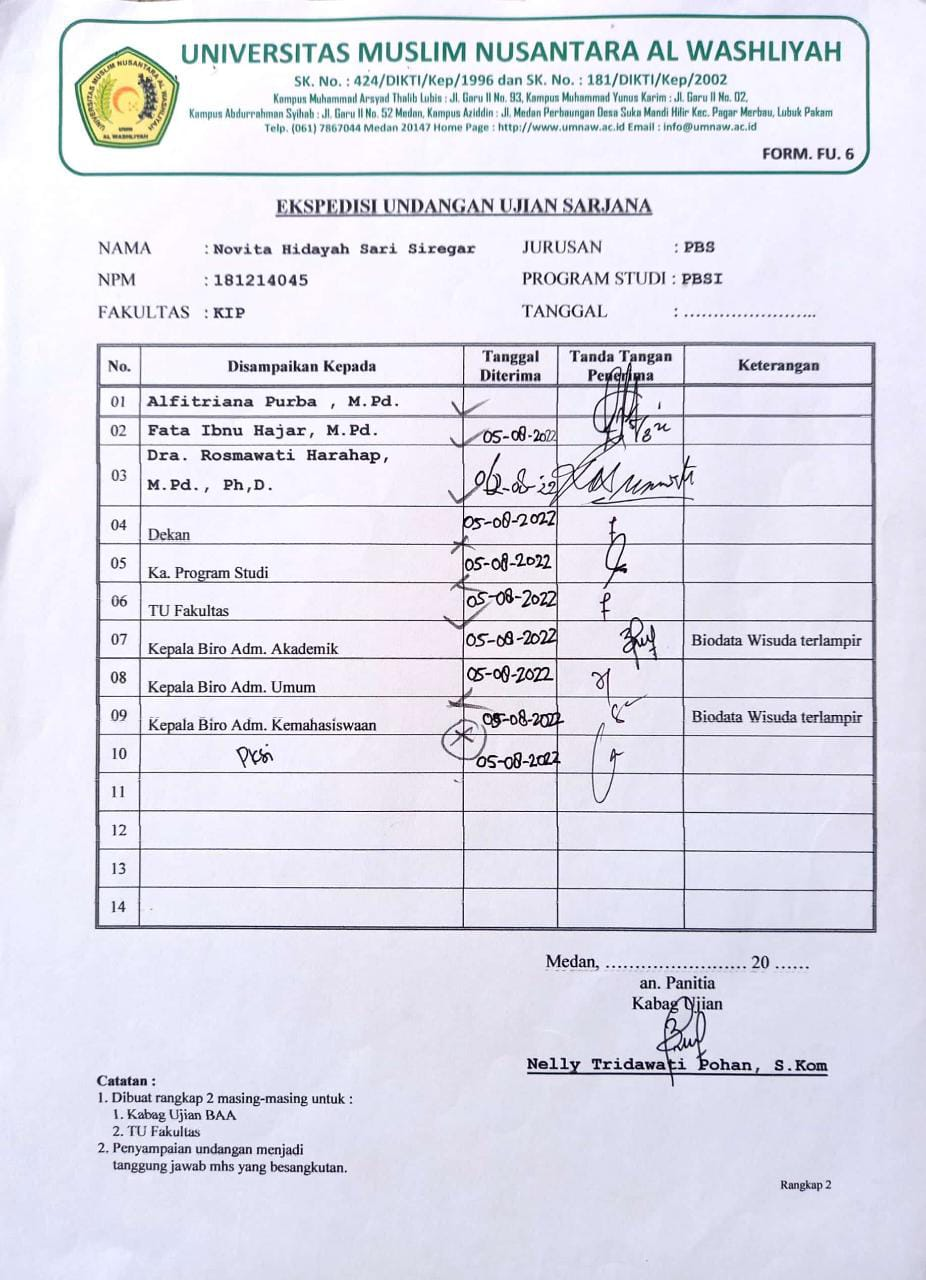 UNIVERSITAS MUSLIM NUSANTARA AL WASHLIYAH
SK. No. : 424/DIKTI/Kep/1996 dan SK. No. : 181/DIKTI/Kep/2002
Kampus Muhammad Arsyad Thalib Lubis : Jl. Garu II No. 93, Kampus Muhammad Yunus Karim : Jl. Garu II No. 02,
Kampus Abdurrahman Syihab : Jl. Garu II No. 52 Medan, Kampus Aziddin : Jl. Medan Perbaungan Desa Suka Mandi Hilir Kec. Pagar Merbau, Lubuk Pakam
Telp. (061) 7867044 Medan 20147 Home Page : http://www.umnaw.ac.id Email : info@umnaw.ac.id
UNIVERSITAS MUSLIM NUSANTARA AL WASHLIYAH
UMN
AL WASHLIYAH
FORM. FU. 6
EKSPEDISI UNDANGAN UJIAN SARJANA
NAMA : Novita Hidayah Sari Siregar JURUSAN : PBS
NPM : 181214045 PROGRAM STUDI : PBSI
FAKULTAS : KIP TANGGAL : .........................
No. Disampaikan Kepada Tanggal Diterima Tanda Tangan Penerima Keterangan
01 Alfitriana Purba , M.Pd.
02 Fata Ibnu Hajar, M.Pd. 05-08-2022
03 Dra. Rosmawati Harahap,
M.Pd., Ph,D.
04 Dekan 05-08-2022
05 Ka. Program Studi 05-08-2022
06 TU Fakultas 05-08-2022
07 Kepala Biro Adm. Akademik 05-08-2022 Biodata Wisuda terlampir
08 Kepala Biro Adm. Umum 05-08-2022
09 Kepala Biro Adm. Kemahasiswaan 05-08-2022 Biodata Wisuda terlampir
10 PKSI 05-08-2022
11
12
13
14
Medan, ......................... 20 ......
an. Panitia
Kabag Ujian
Nelly Tridawati Pohan, S.Kom
Catatan :
1. Dibuat rangkap 2 masing-masing untuk :
1. Kabag Ujian BAA
2. TU Fakultas
2. Penyampaian undangan menjadi
tanggung jawab mhs yang besangkutan.
Rangkap 2